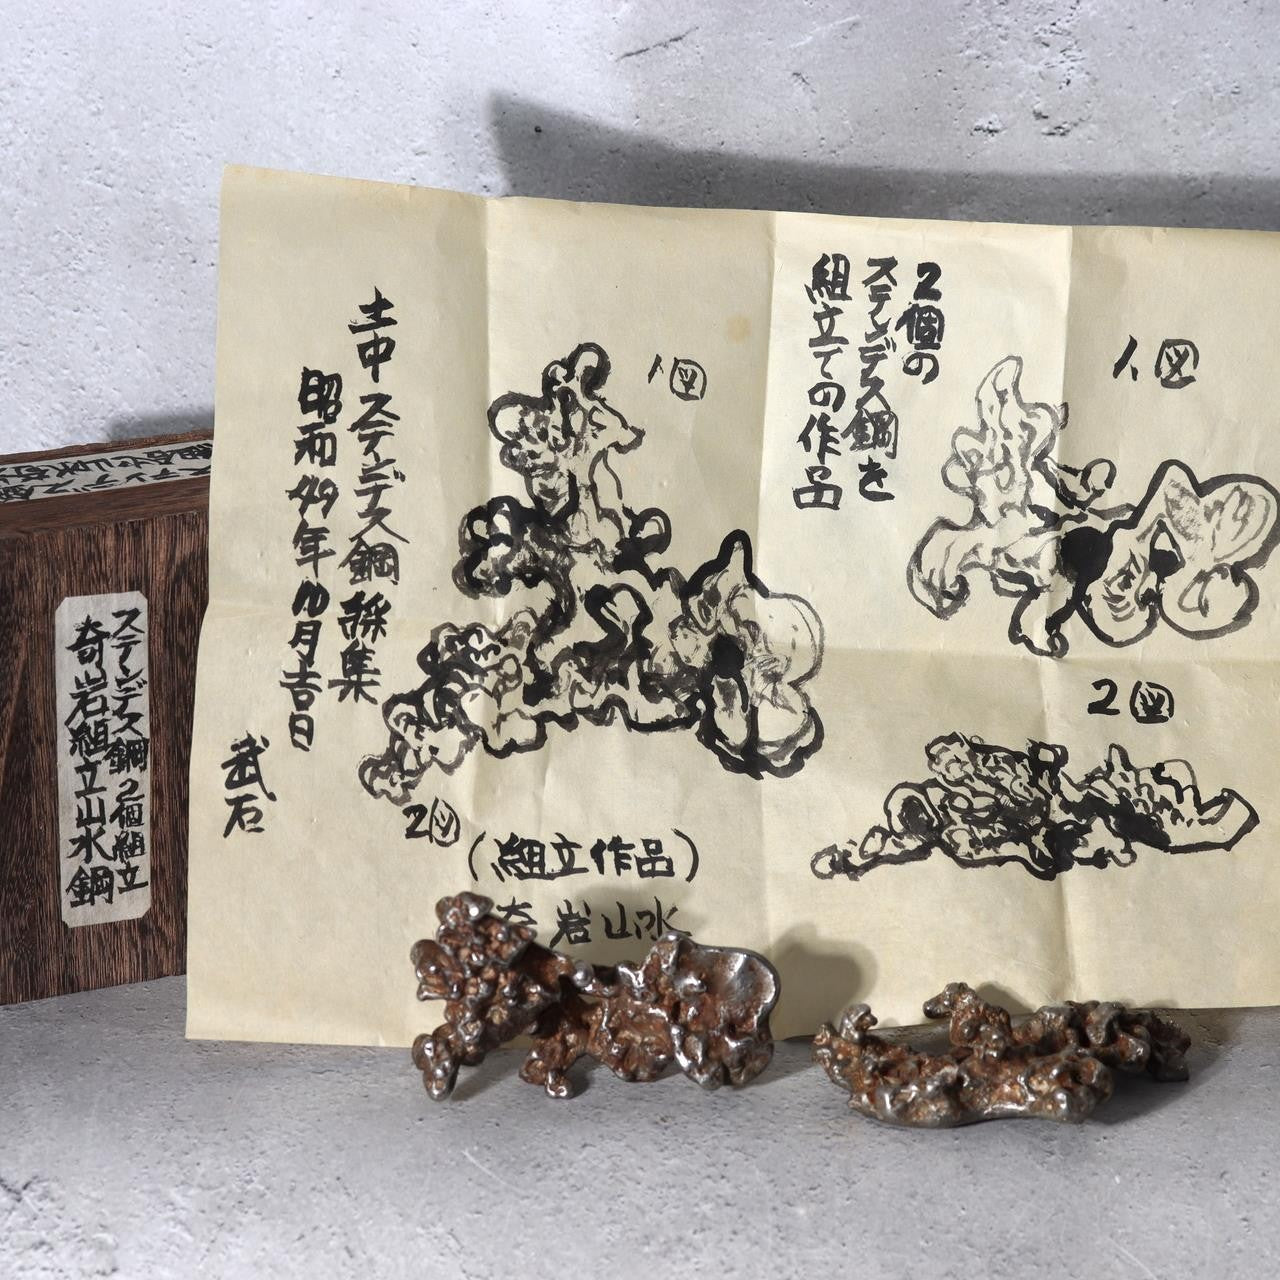 1図
2個の
ステンデス鋼を
組立ての作品
2図
1図
土中ステンデス鋼採集
昭和49年10月吉日
武石
2図
(組立作品)
奇岩山水
ステンデス鋼2個組立
奇岩組立山水鋼